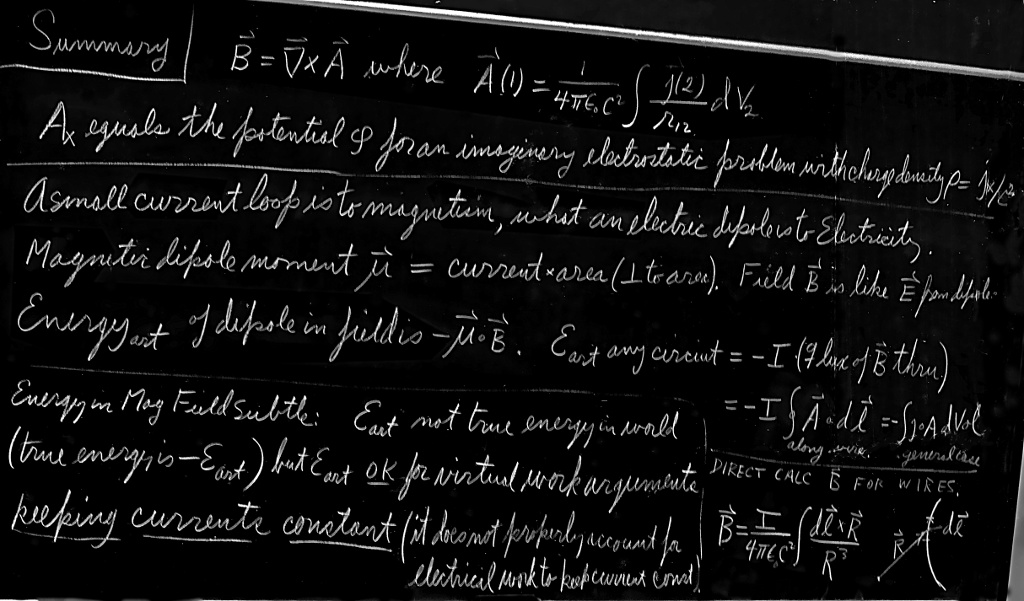 Summary
B⃗ = ∇⃗ × A⃗ where A⃗(1) = 1/4πε₀c² ∫ j(2)/r₁₂ dV₂
Aₓ equals the potential φ for an imaginary electrostatic problem with charge density ρ = jₓ/c²
A small current loop is to magnetism, what an electric dipole is to Electricity.
Magnetic dipole moment μ⃗ = current × area (⊥ to area). Field B⃗ is like E⃗ from dipole.
Energy art of dipole in field is −μ⃗·B⃗. Eart any circuit = −I (flux of B⃗ thru)
= −I ∮ A⃗·dl⃗ = −∫j·A dVol
along wire. general case
Energy in Mag Field Subtle: Eart not true energy in world
(true energy is −Eart) but Eart OK for virtual work arguments
keeping currents constant (it does not properly account for
electrical work to keep current const)
DIRECT CALC B⃗ FOR WIRES.
B⃗ = I/4πε₀c² ∫ dl⃗×R⃗/R³
R⃗ dl⃗